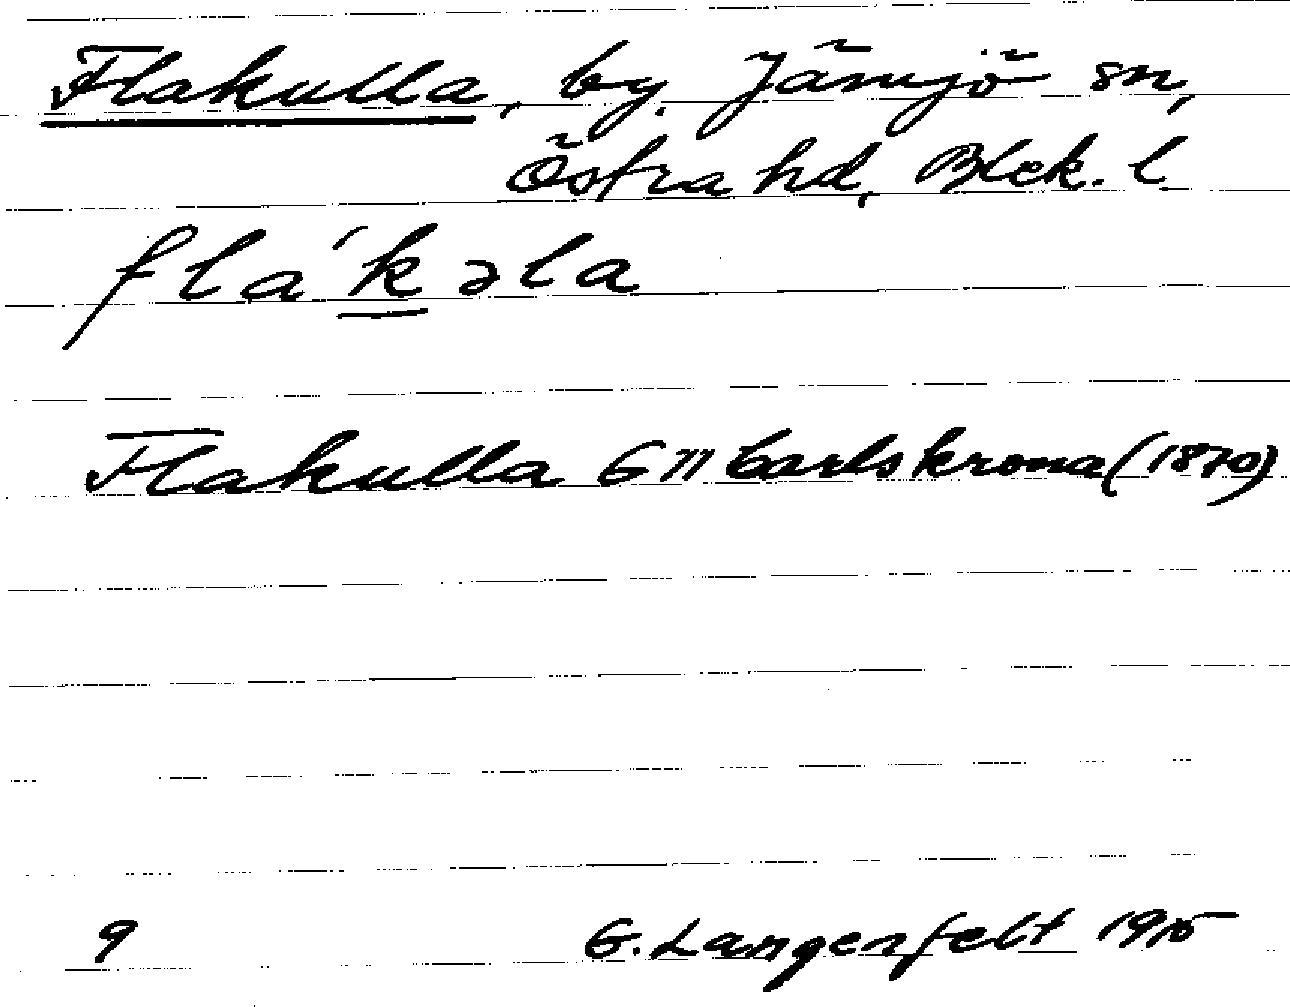 Flakulla, by. Jämjö sn,
Östra hd, Blek. l.
fla´kəla
Flakulla G 11 Carlskrona (1870)
9 G. Langenfelt 1915